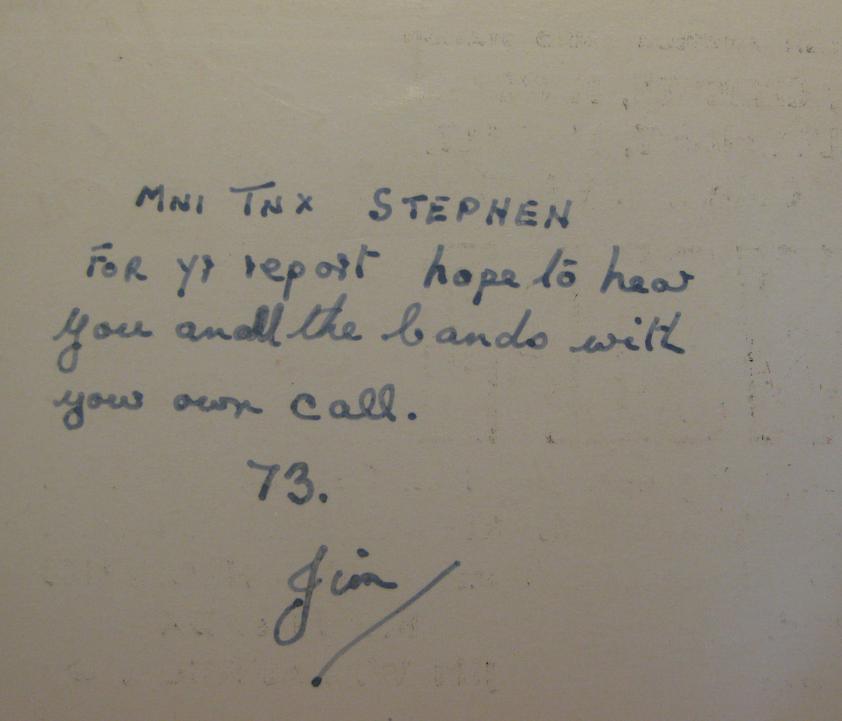 MNI TNX STEPHEN
FOR yr report hope to hear
you the bands with
your own call.
73.
Jim